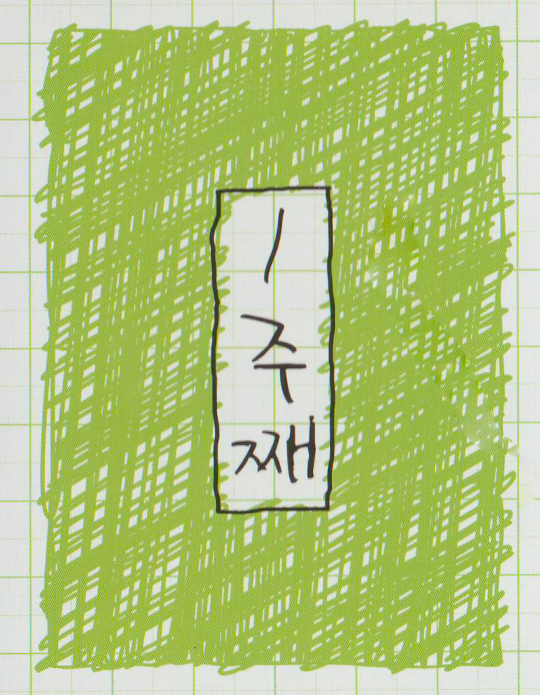 1주째